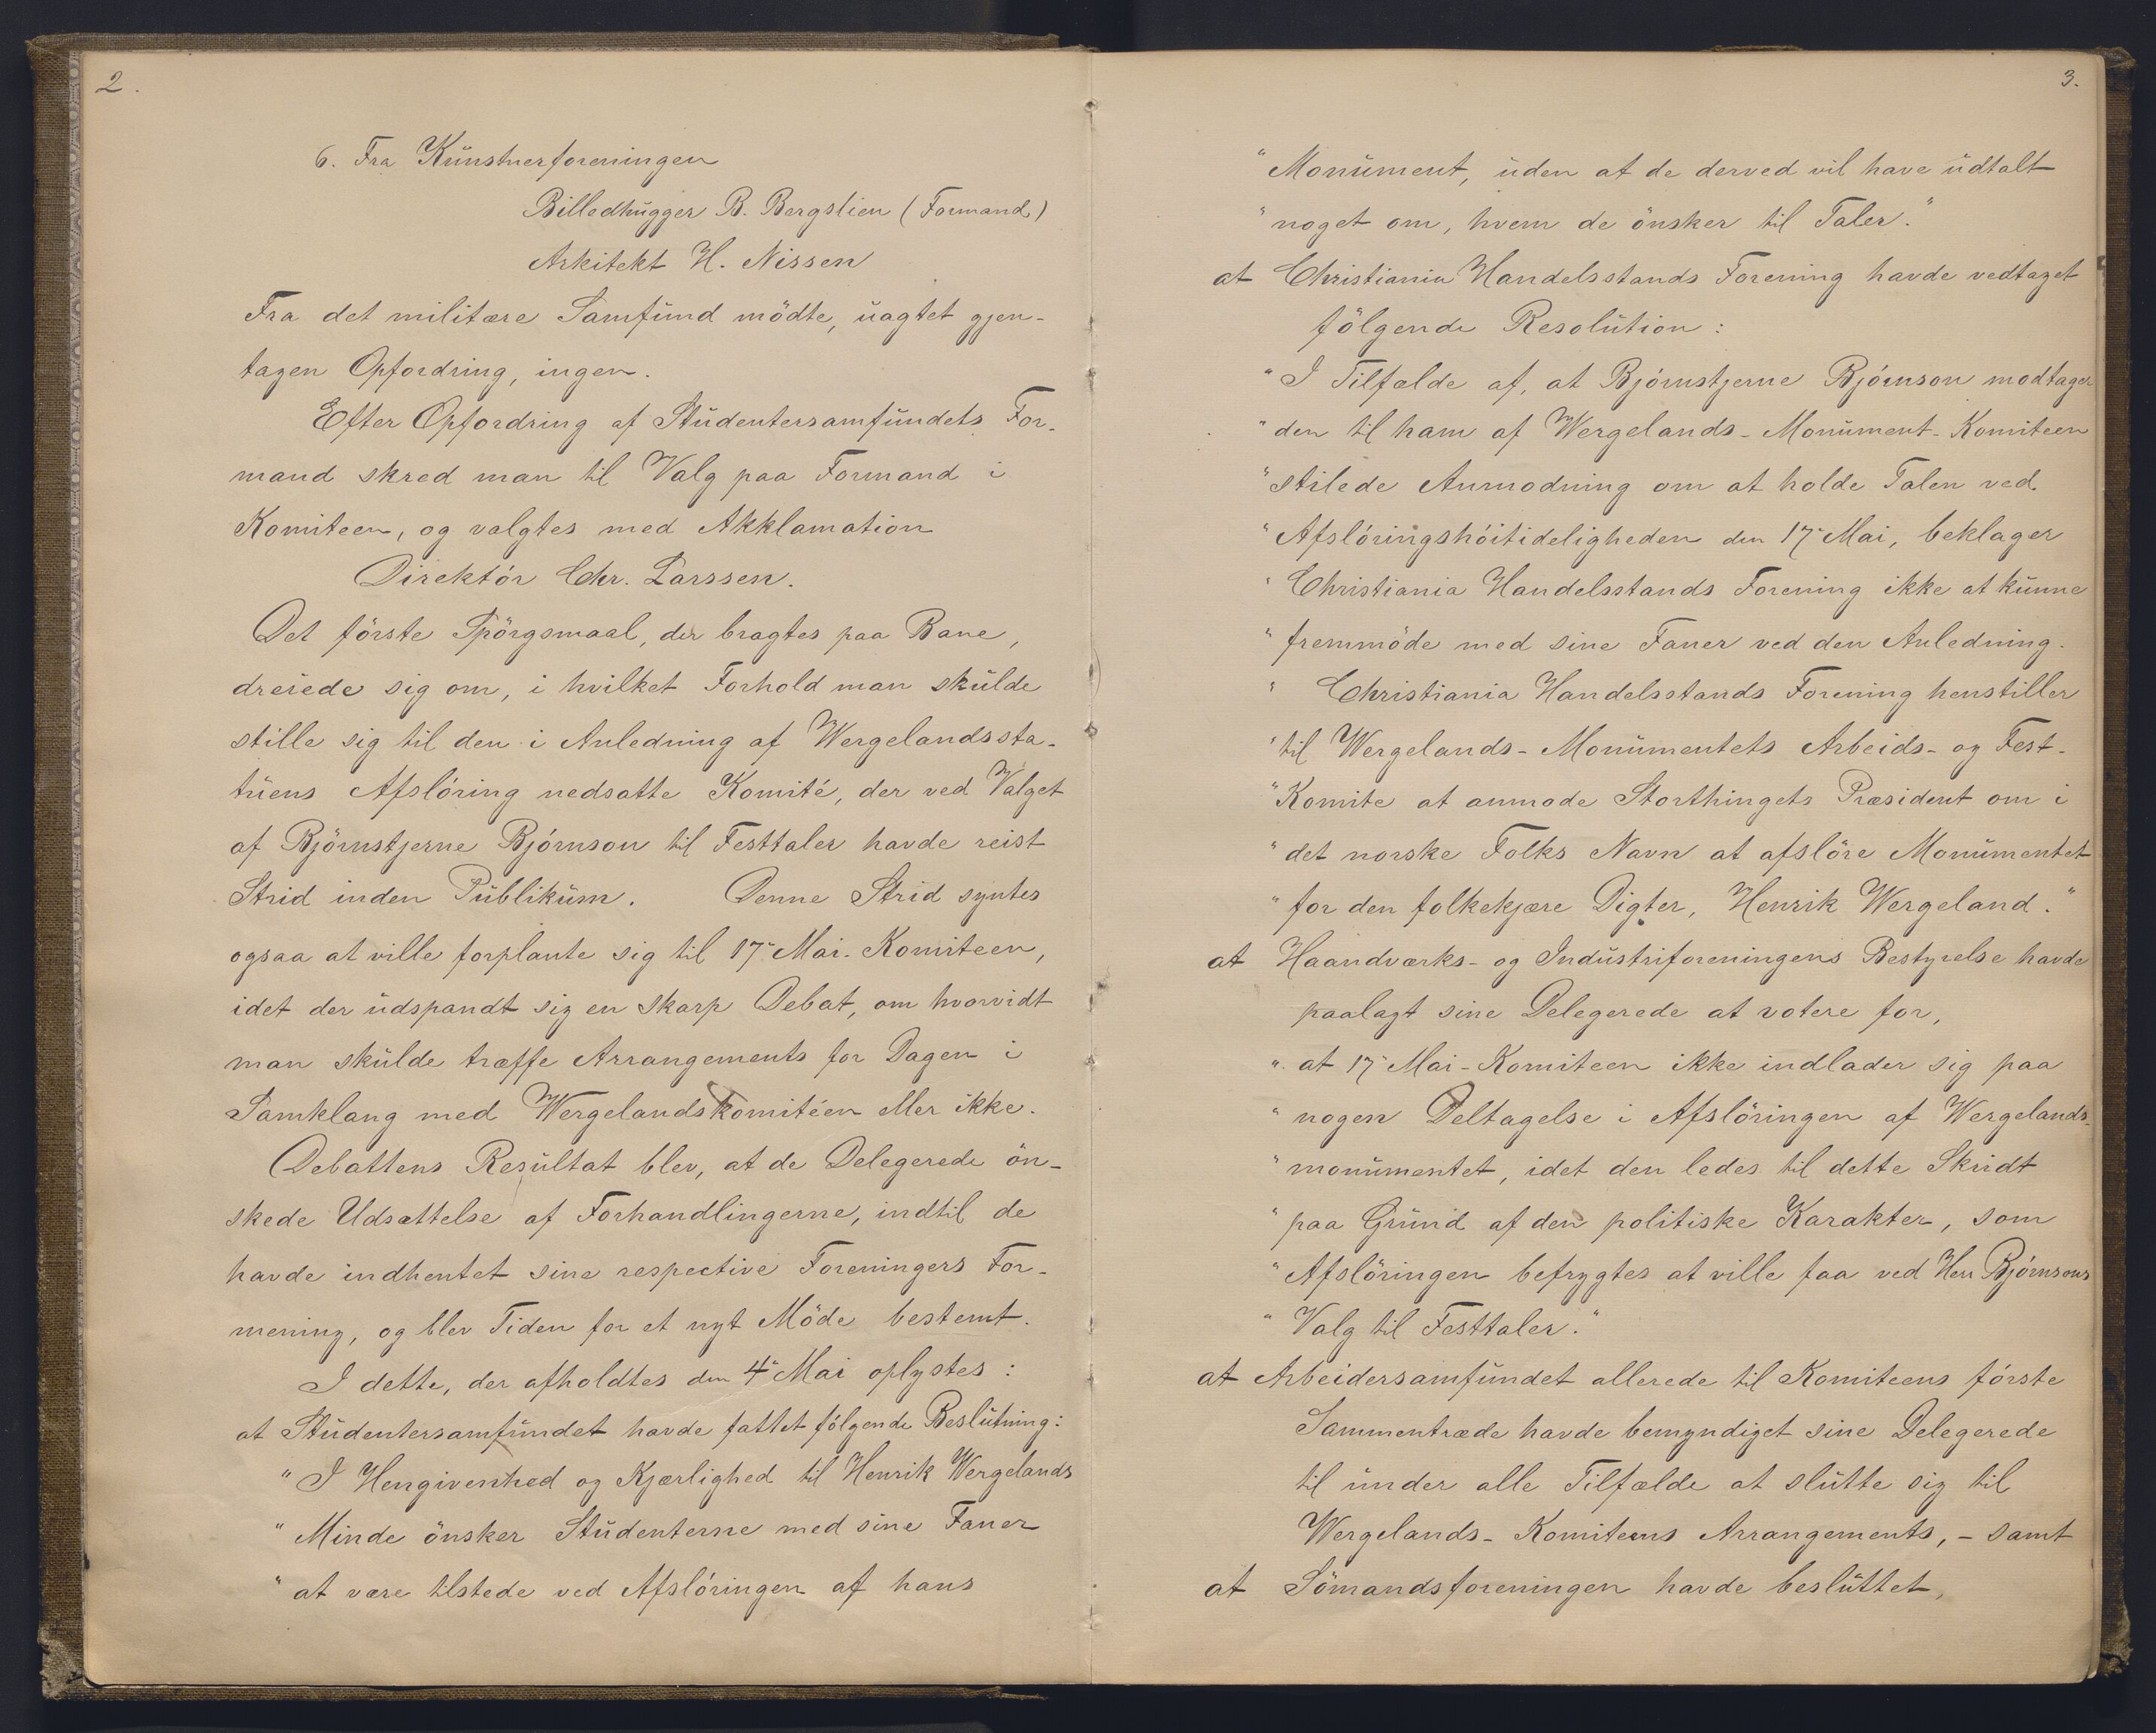 2.
6. Fra Kunstnerforeningen
Billedhugger B. Bergslien (Formand)
Arkitekt H. Nissen
Fra det militære Samfund mödte, uagtet gjen-
tagen Opfordring, ingen.
Efter Opfordring af Studentersamfundets For-
mand skred man til Valg paa Formand i
Komiteen, og valgtes med Akklamation
Direktör Chr. Larssen.
Det förste Spörgsmaal, der bragtes paa Bane,
dreiede sig om, i hvilket Forhold man skulde
stille sig til den i Anledning af Wergelandssta-
tuens Afslöring nedsatte Komité, der ved Valget
af Björnstjerne Björnson til Festtaler havde reist
Strid inden Publikum. Denne Strid syntes
ogsaa at ville forplante sig til 17 Mai-Komiteen,
idet der udspandt sig en skarp Debat, om hvorvidt
man skulde træffe Arrangements for Dagen i
Samklang med Wergelandskomitéen eller ikke.
Debattens Resultat blev, at de Delegerede ön-
skede Udsættelse af Forhandlingerne, indtil de
havde indhentet sine respective Foreningers For-
mening, og blev Tiden for et nyt Möde bestemt.
I dette, der afholdtes den 4 Mai oplystes:
at Studentersamfundet havde fattet fölgende Beslutning:
"I Hengivenhed og Kjærlighed til Henrik Wergelands
"Minde önsker Studenterne med sine Faner
"at være tilstede ved Afslöringen af hans
3.
"Monument, uden at de derved vil have udtalt
"noget om, hvem de önsker til Taler."
at Christiania Handelsstands Forening havde vedtaget
fölgende Resolution:
"I Tilfælde af, at Björnstjerne Björnson modtager
"den til ham af Wergelands-Monument-Komiteen
"stilede Anmodning om at holde Talen ved
"Afslöringshöitideligheden den 17 Mai, beklager
"Christiania Handelsstands Forening ikke at kunne
"fremmöde med sine Faner ved den Anledning.
" Christiania Handelsstands Forening henstiller
"til Wergelands-Monumentets Arbeids- og Fest-
"Komite at anmode Storthingets Præsident om i
"det norske Folks Navn at afslöre Monumentet
"for den folkekjære Digter, Henrik Wergeland."
at Haandværks- og Industriforeningens Bestyrelse havde
paalagt sine Delegerede at votere for,
"at 17 Mai-Komiteen ikke indlader sig paa
"nogen Deltagelse i Afslöringen af Wergelands-
"monumentet, idet den ledes til dette Skridt
"paa Grund af den politiske Karakter, som
"Afslöringen befrygtes at ville faa ved Herr Björnsons
"Valg til Festtaler."
at Arbeidersamfundet allerede til Komiteens förste
Sammentræde havde bemyndiget sine Delegerede
til under alle Tilfælde at slutte sig til
Wergelands-Komiteens Arrangements, - samt
at Sömandsforeningen havde besluttet,